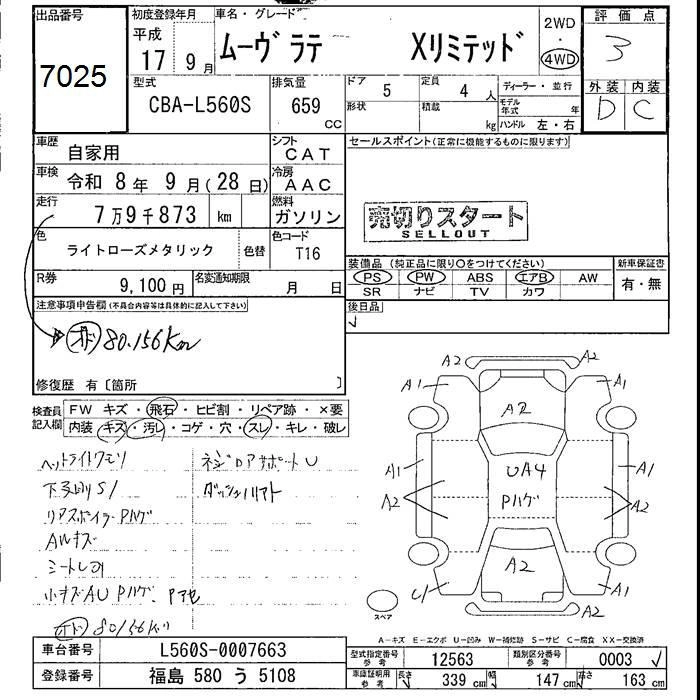 出品番号
7025
初度登録年月
平成
17 9月
車名・グレード
ムーヴ ラテ Xリミテッド
2WD
・
4WD
評価点
3
外装 内装
D C
型式
CBA-L560S
排気量
659
CC
ドア
5
定員
4 人
形状
積載
kg
ディーラー・並行
モデル年式 年
ハンドル 左・右
車歴
自家用
シフト
CAT
車検
令和 8年 9月(28日)
冷房
AAC
走行
7万9千873 km
燃料
ガソリン
色
ライトローズメタリック
色替
色コード
T16
R券
9,100円
名変通知期限
月 日
セールスポイント(正常に機能するものに限ります)
売切りスタート
SELLOUT
装備品(純正品に限り○をつけてください)
PS PW ABS エアB AW
SR ナビ TV カワ
新車保証書
有・無
後日品
レ
注意事項申告欄(不具合内容等は具体的に記入して下さい)
オド 80.156Km
修復歴 有〔箇所 〕
検査員
記入欄
FW キズ・飛石・ヒビ割・リペア跡・×要
内装 キズ・汚レ・コゲ・穴・スレ・キレ・破レ
ヘットライトクモリ
下廻リS1
リアスポイラーPハゲ
AWキズ
小キズAU Pハゲ、
コアサポートU
オド 80156キロ
A2 A2
A1 A1
A2
A1 UA4 A1
A2 Pハゲ A2
A2
A1
A2 A2
スペア
A-キズ E-エクボ U-凹み W-補修跡 S-サビ C-腐食 XX-交換済
車台番号
L560S-0007663
登録番号
福島 580 う 5108
型式指定番号
参考
12563
類別区分番号
参考
0003
車庫証明用
参考
長さ 339 cm 幅 147 cm 高さ 163 cm